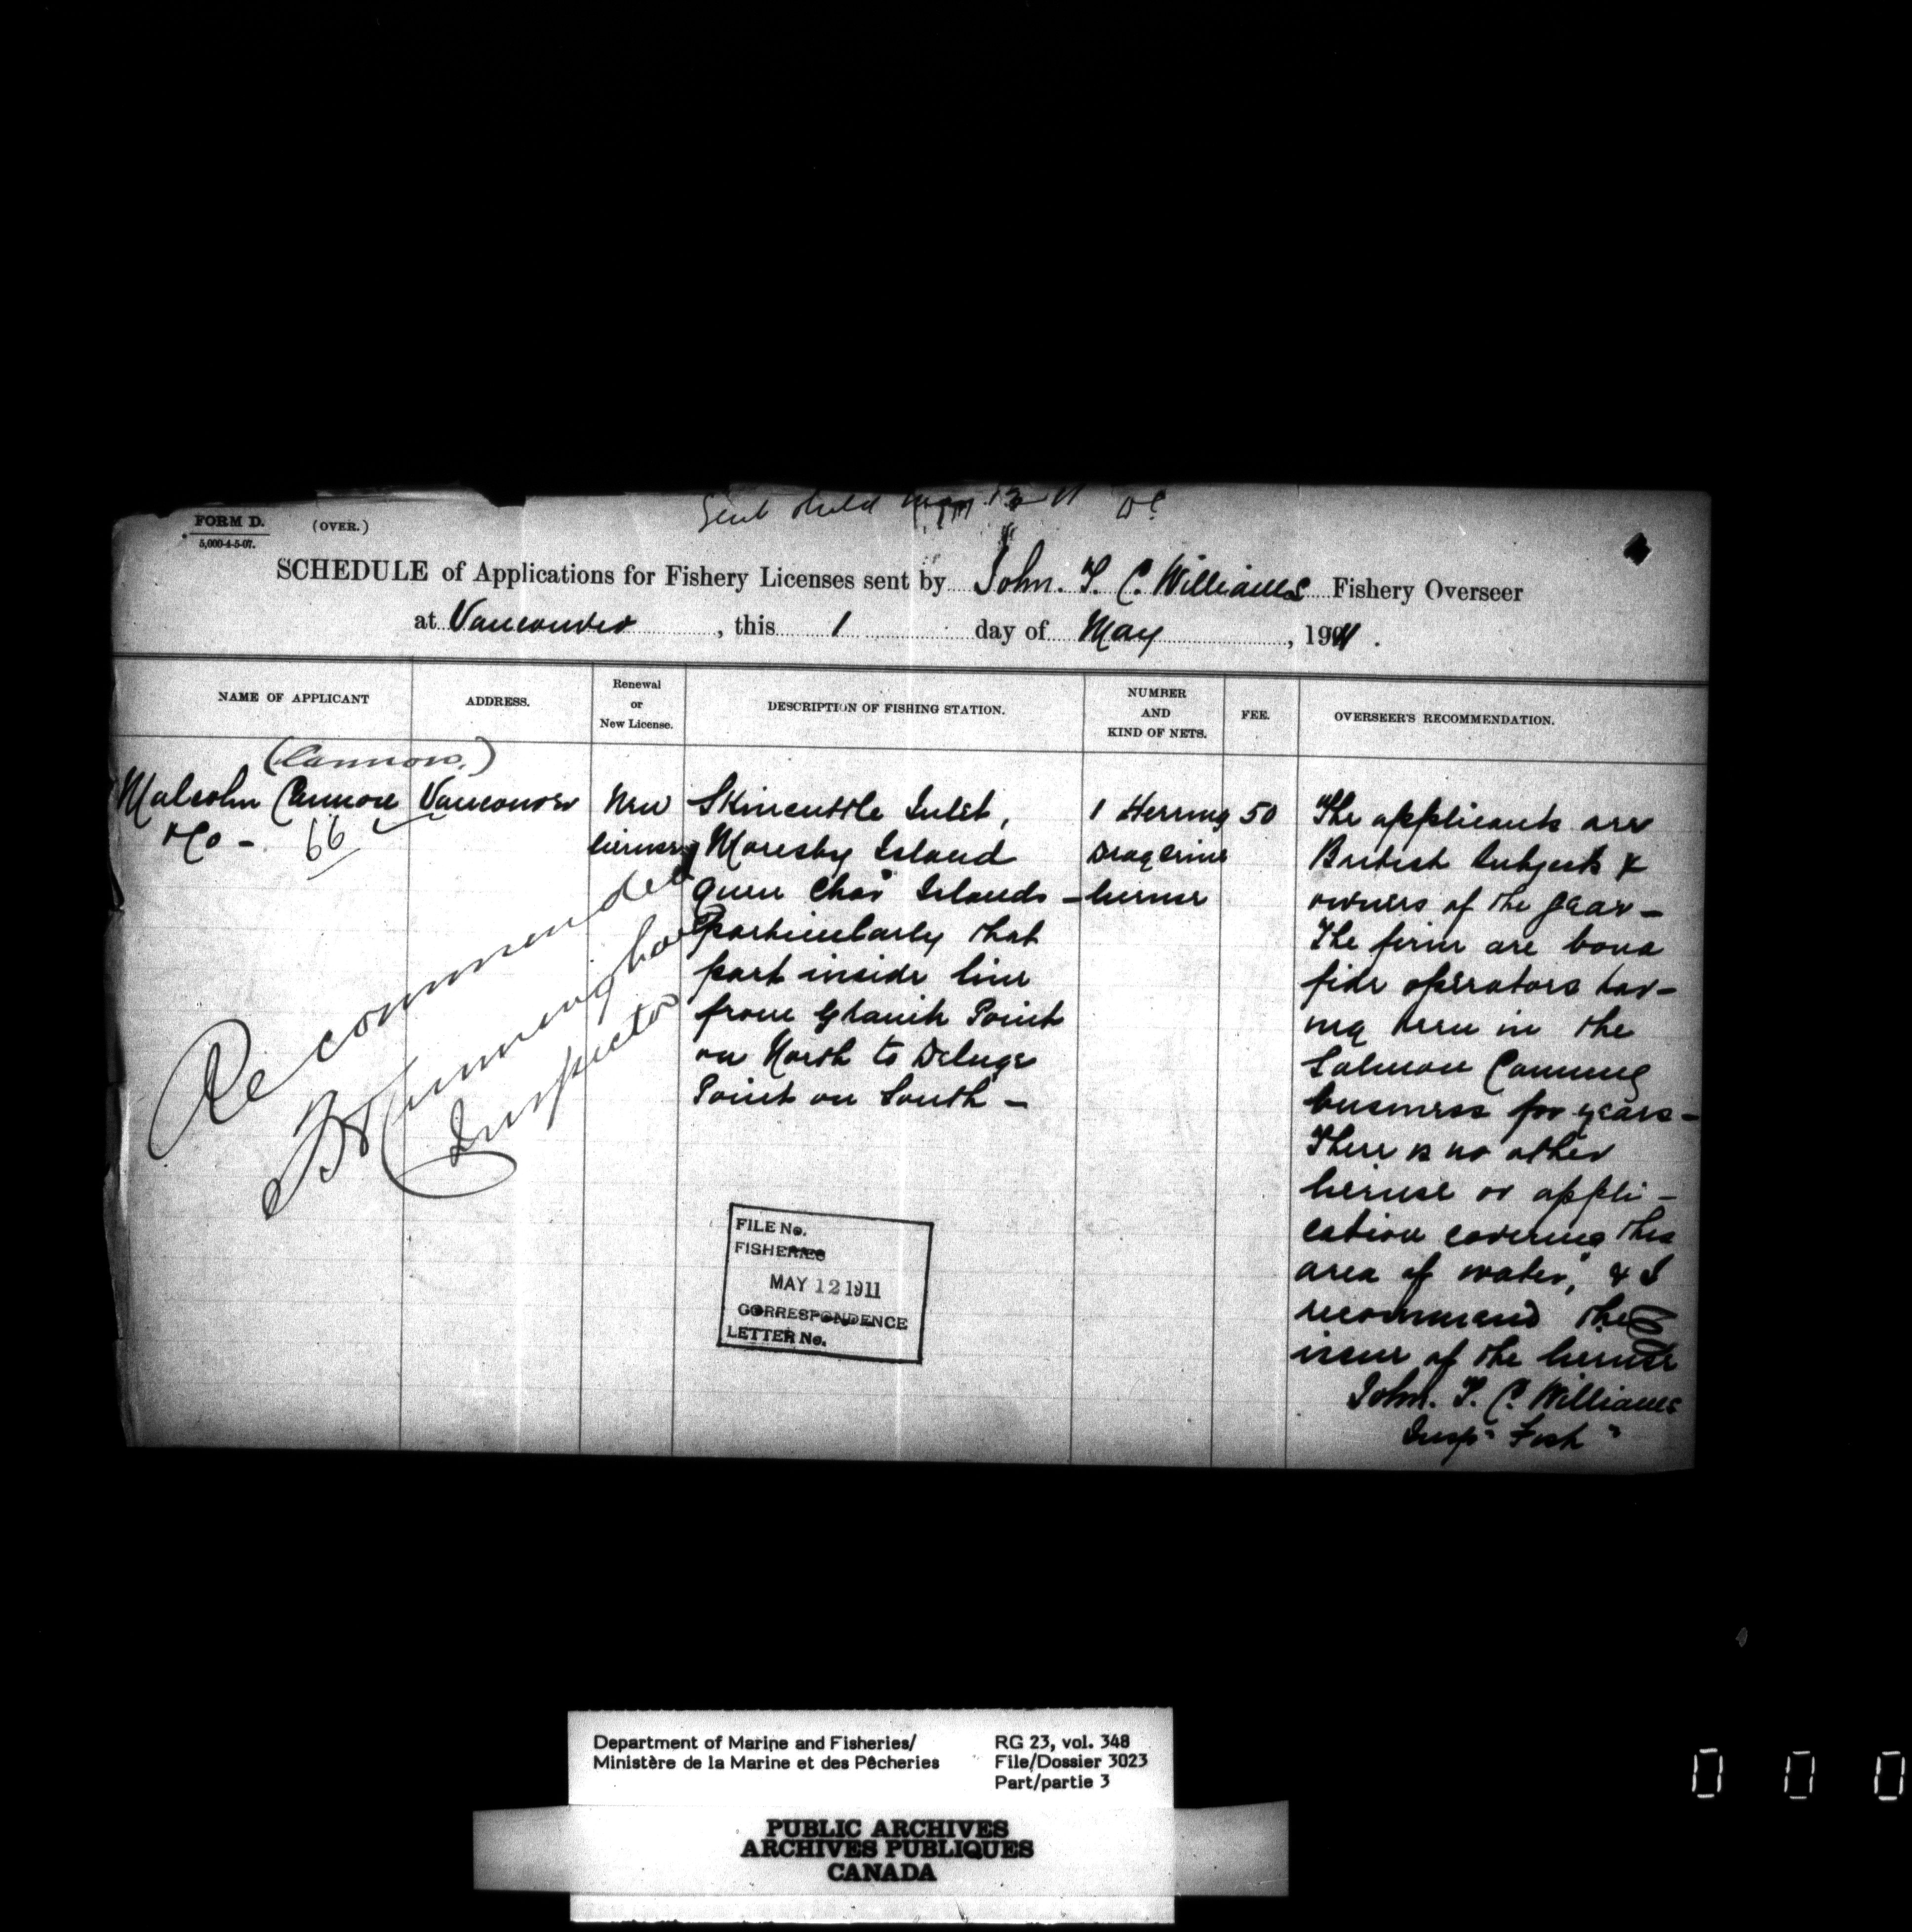 FORM D. (OVER.)
5,000-4-5-07.
May 13 11
SCHEDULE of Applications for Fishery Licenses sent by John. T. C. Williams Fishery Overseer
at Vancouver, this 1 day of May, 1911.
NAME OF APPLICANT
ADDRESS.
Renewal
or
New License.
DESCRIPTION OF FISHING STATION.
NUMBER
AND
KIND OF NETS.
FEE.
OVERSEER'S RECOMMENDATION.
(Cannon.)
Malcolm Cannon
& Co -
66
Vancouver
New
license
Skincuttle Inlet,
Moresby Island
Queen Chas Islands -
Particularly that
part inside line
from Granite Point
on North to Deluge
Point on South -
1 Herring
Dragseine
license
50
The applicants are
British Subjects &
owners of the gear -
The firm are bona
fide operators hav-
ing been in the
Salmon Canning
business for years -
There is no other
license or appli-
cation covering this
area of water, & I
recommend the
issue of the license
John. T. C. Williams
Insp" Fish "
Recommended
Cunningham
Inspector
FILE No.
FISHERIES
MAY 12 1911
CORRESPONDENCE
LETTER No.
Department of Marine and Fisheries/
Ministère de la Marine et des Pêcheries
RG 23, vol. 348
File/Dossier 3023
Part/partie 3
PUBLIC ARCHIVES
ARCHIVES PUBLIQUES
CANADA
0 0 0